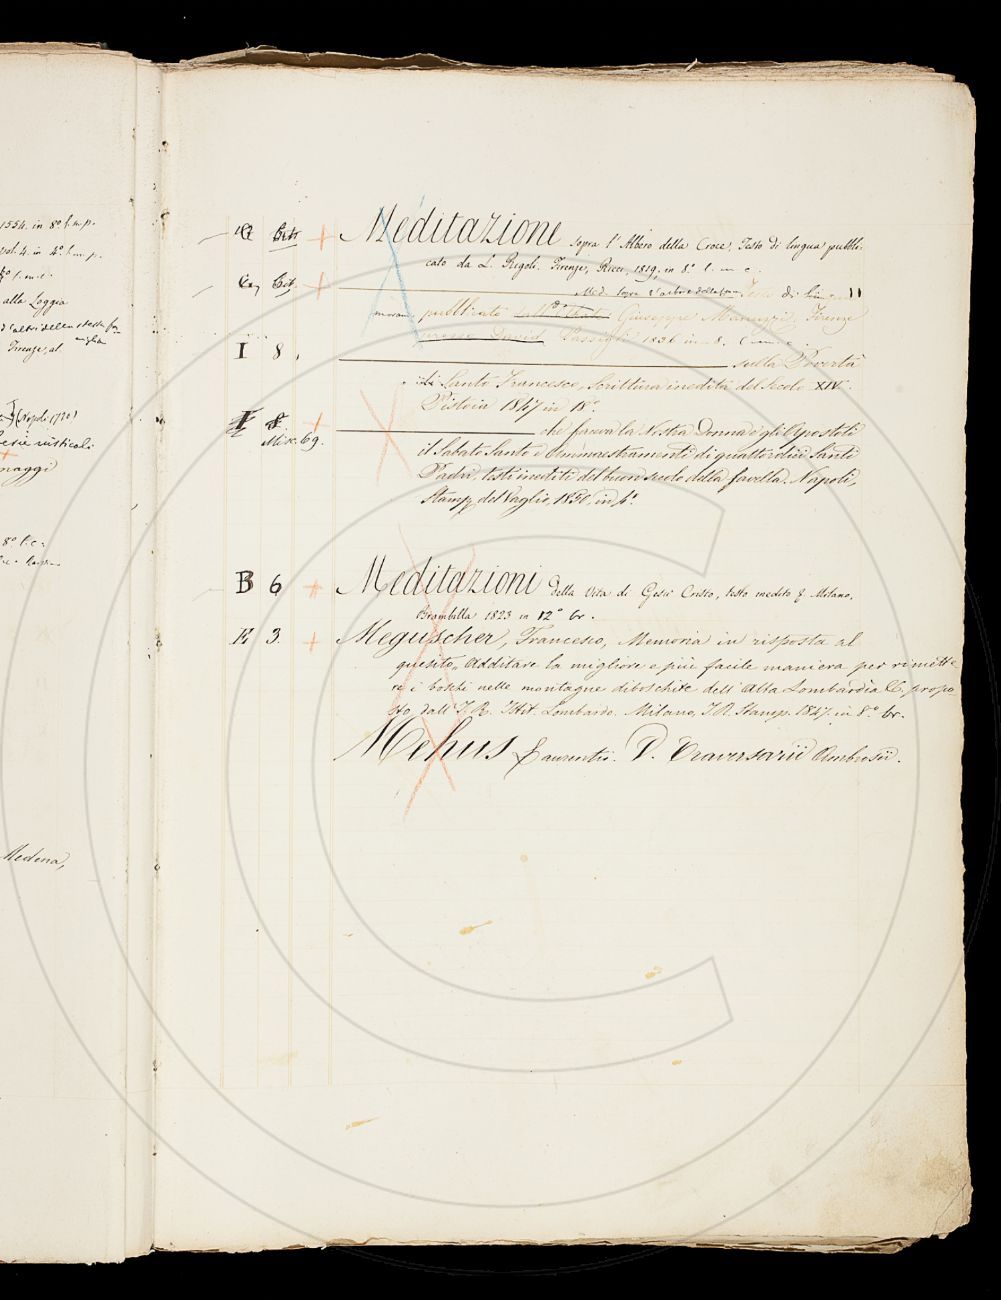 1554. in 8º. l. m. p.
vol. 4. in 4º. l. m. p.
8º l. m. c.
alla Loggia
Firenze, al
(Napoli 1720)
rusticali
maggi
8º l. c.
Modena,
Meditazione sopra l'Albero della Croce, Testo di lingua pubbli-
cato da L. Rigoli. Firenze, Ricci, 1819. in 8º. l. m. c.
Cas. Cit. Med. sopra l'arbore della Testo di lingua
pubblicato Giuseppe Manuzzi. Firenze
David Passigli 1836 in 8. l. m. c.
I 8. sulla Povertà
di Santo Francesco, Scrittura inedita del Secolo XIV.
Pistoia 1847 in 18º.
I 8. che faceva la Nostra Donna e gli Apostoli
Misc. 69. il Sabato Santo e Ammaestramenti di quattordici Santi
Padri, testi inediti del buon secolo della favella. Napoli,
Stamp. del Vaglio, 1850, in 4º.
B 6 Meditazioni della Vita di Gesù Cristo, testo inedito & Milano.
Brambilla 1823 in 12º br.
E 3 Meguscher, Francesco, Memoria in risposta al
quesito „ Additare la migliore e più facile maniera per rimette-
re i boschi nelle montagne diboschite dell'Alta Lombardia &. propo-
sto dall'I. R. Istit. Lombardo. Milano, I. R. Stamp. 1847. in 8.º br.
Mehus Laurentii. V. Traversarii Ambrosii.
C